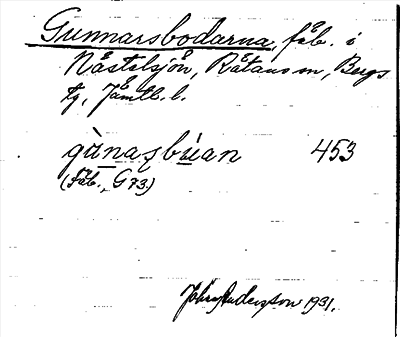 Gunnarsbodarna, fäb. i
Nästelsjön, Rätans sn, Bergs
tg, Jämtl. l.
gànaʂbúan 453
(fäb., G73)
John Anderzson 1931.